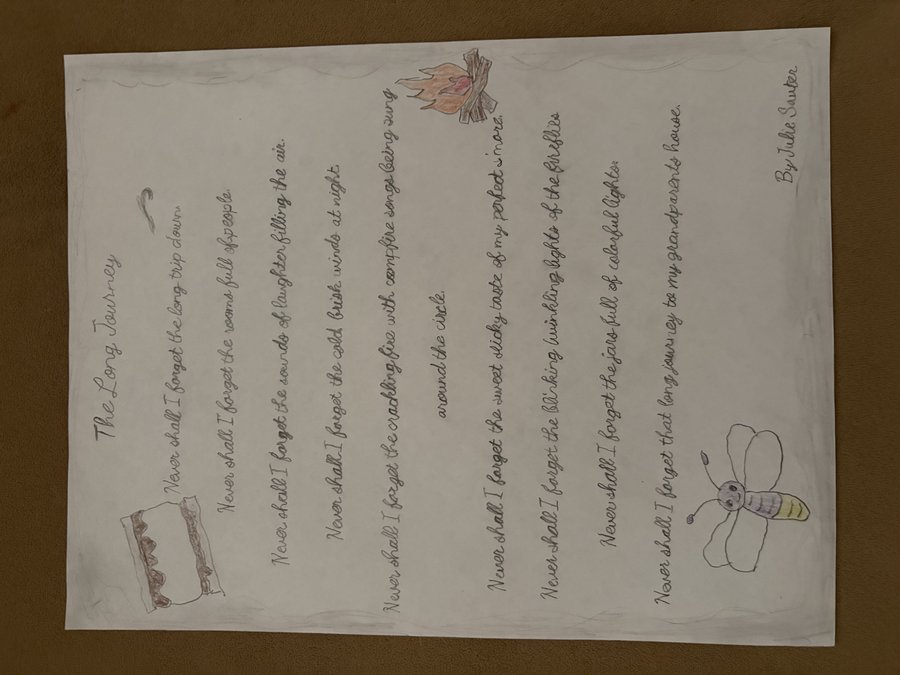 The Long Journey
Never shall I forget the long trip down.
Never shall I forget the rooms full of people.
Never shall I forget the sounds of laughter filling the air.
Never shall I forget the cold brisk winds at night.
Never shall I forget the crackling fire with campfire songs being sung
around the circle.
Never shall I forget the sweet sticky taste of my perfect s'more.
Never shall I forget the blinking twinkling lights of the fireflies
Never shall I forget the jars full of colorful lights.
Never shall I forget that long journey to my grandparents house.
By Julie Sauter